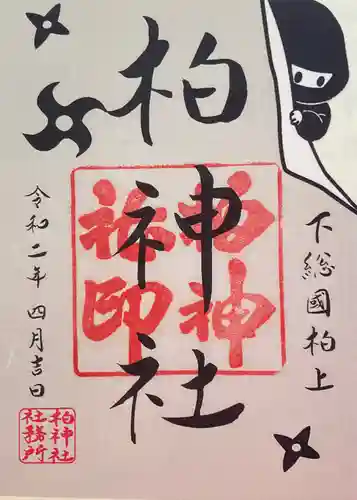 下総國柏上
柏神社
令和二年四月吉日
柏神
社印
柏神社
社務所